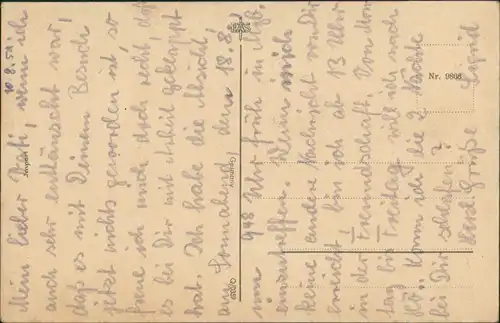 10.8.51
Mein lieber Rati, wenn ich
auch sehr enttäuscht war,
daß es mit Deinem Besuch
jetzt nichts geworden ist, so
freue ich mich doch recht, daß
es bei Dir mit Arbeit geklappt
hat. Ich habe die Absicht,
am Sonnabend, den 18.8.
um 9 48 Uhr früh in Mgb.
einzutreffen. Wenn mich
keine andere Nachricht von Dir
erreicht, bin ich ab 13 Uhr
in der Freundschaft. Von Mon
tag bis Freitag will ich nach
Kann ich die 2 Nächte
bei Dir schlafen?
Herzl. Grüße Sigrid
Nr. 9808